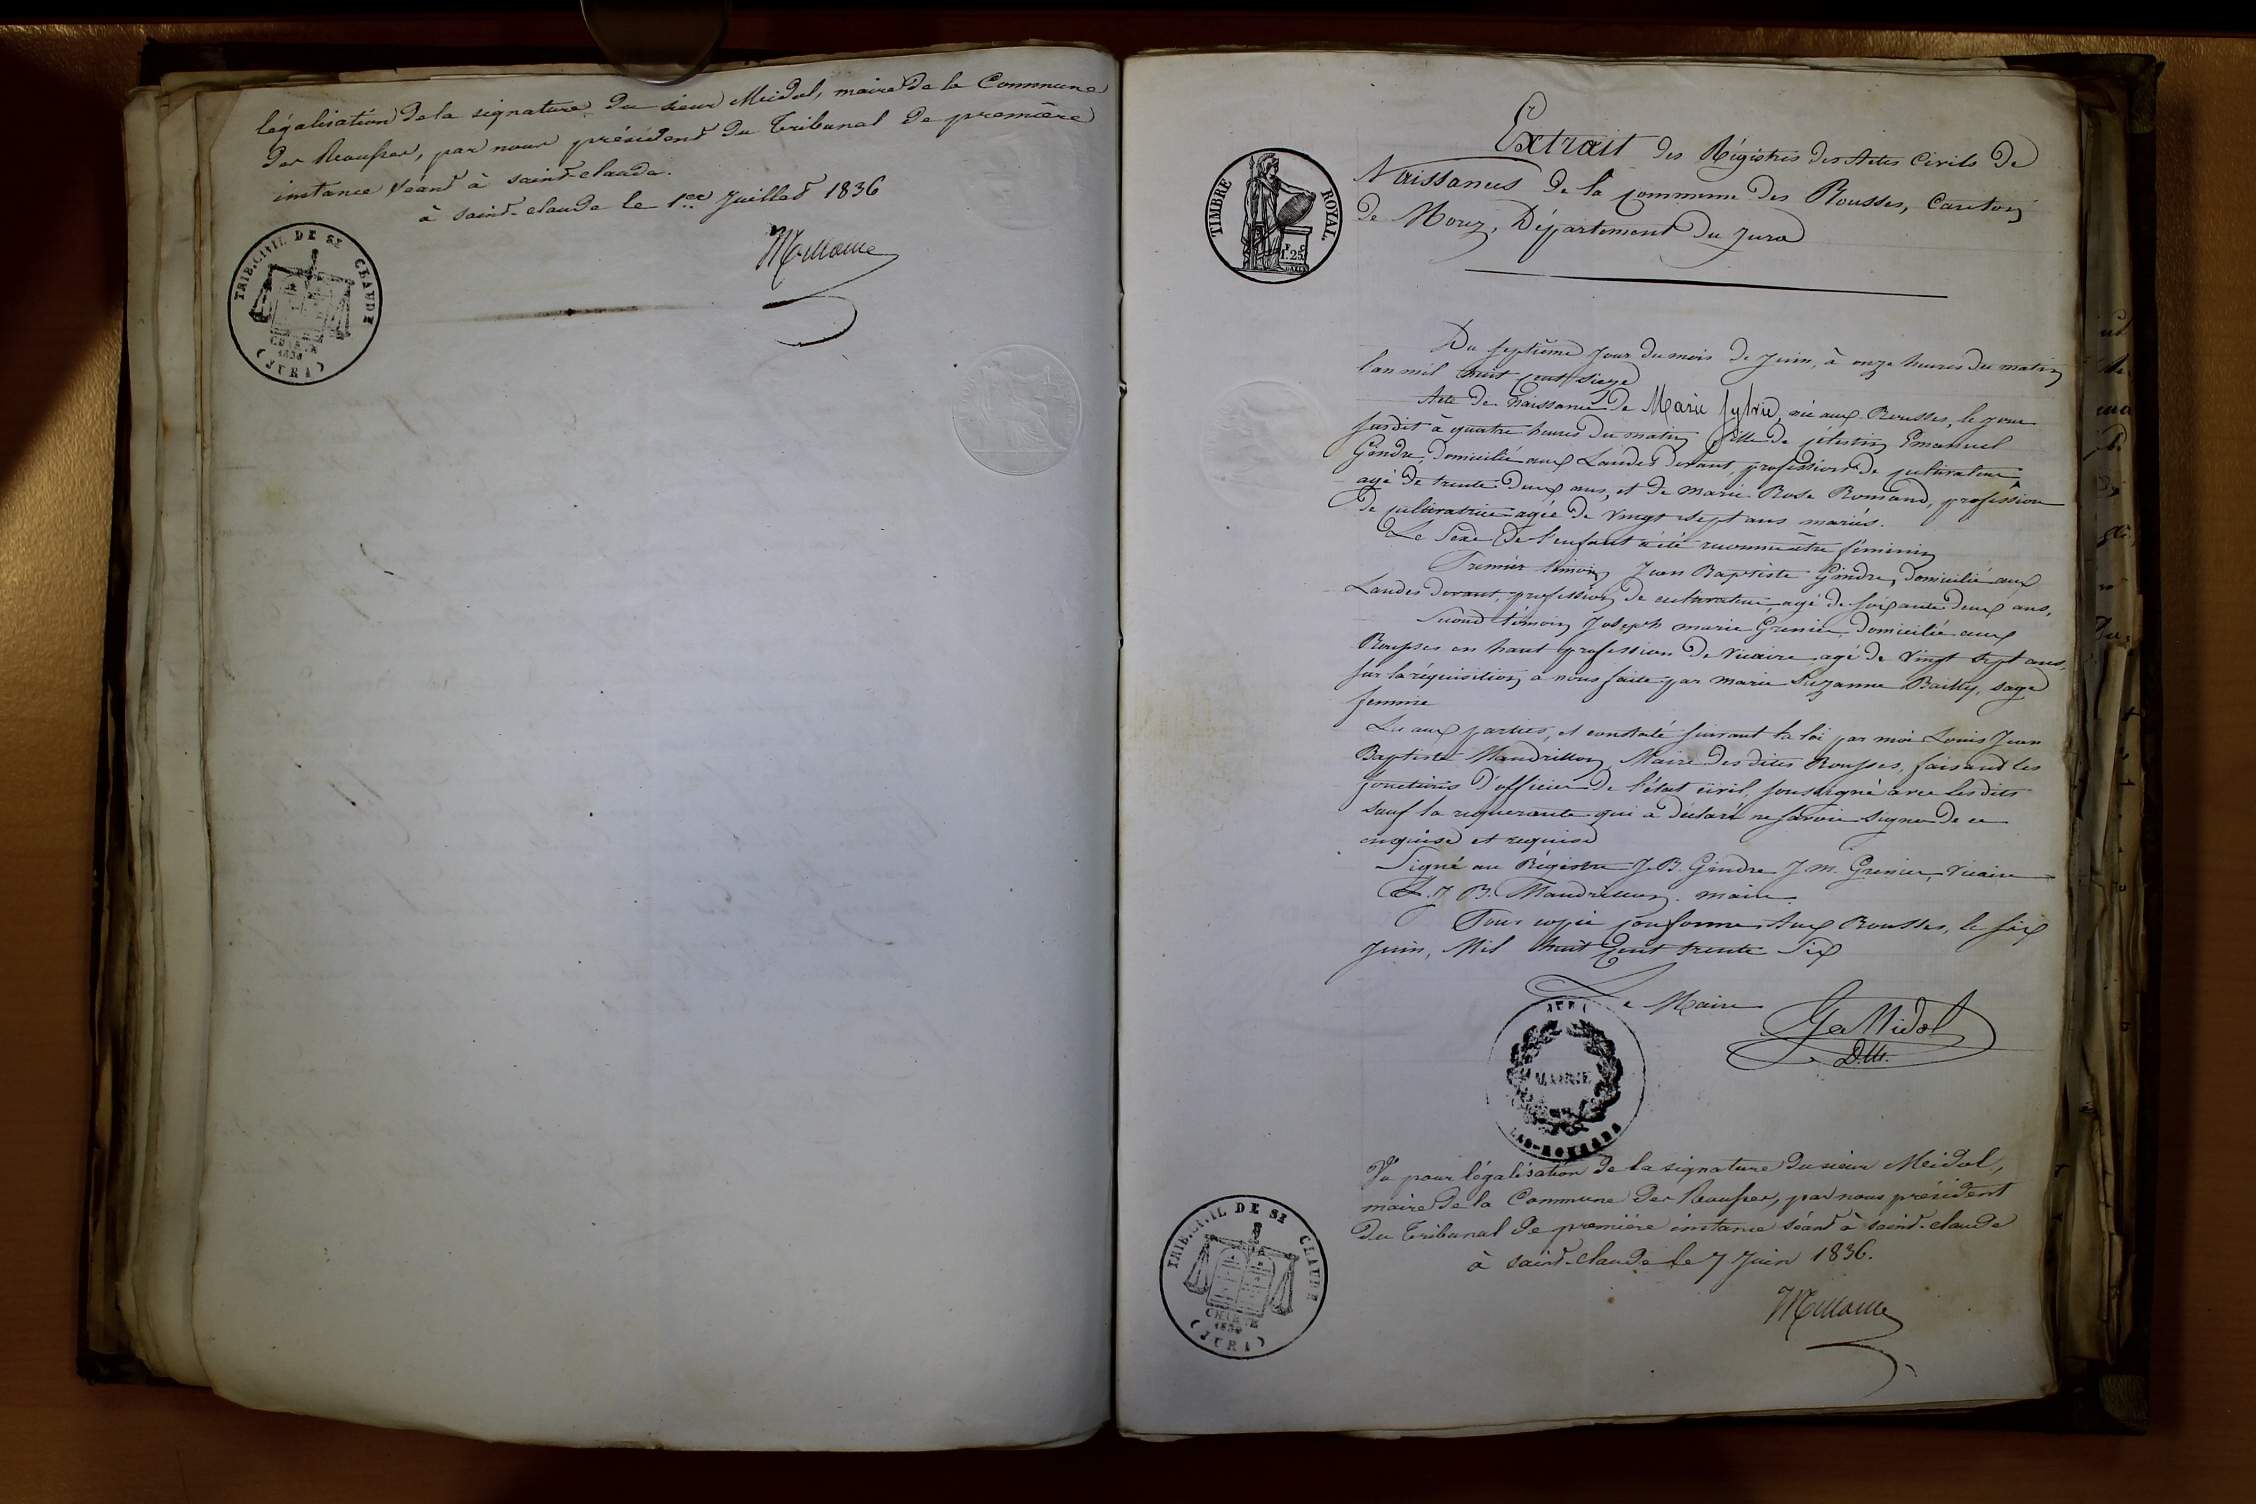 légalisation de la signature du sieur Meidol, maire de la Commune
des Rousses, par nous président du Tribunal de première
instance séant à saint-claude.
à saint-claude le 1er Juillet 1836
TRIB. CIVIL DE ST CLAUDE
CHARTE
1830
(JURA)
Extrait des Régistres des Actes Civils de
Naissances de la commune des Rousses, Canton
de Morez, Département du Jura
TIMBRE ROYAL
1F.25C
Du septième jour du mois de Juin, à onze heures du matin
l'an mil huit cent seize
Acte de Naissance de Marie Sylvie, née aux Rousses, le jour
susdit à quatre heures du matin fille de Célestin Emanuel
Gindre, domicilié aux Landes devant, profession de cultivateur
agé de trente deux ans, et de Marie Rose Romand, profession
de cultivatrice agée de vingt sept ans mariés.
Le Sexe de l'enfant a été reconnu être féminin
Premier témoin Jean Baptiste Gindre, domicilié aux
Landes devant, profession de cultivateur, agé de soixante deux ans,
Second témoin Joseph marie Grenier, domicilié aux
Rousses en haut profession de Vicaire agé de vingt sept ans,
sur la réquisition a nous faite par marie Suzanne Bailly, sage
femme
Lu aux parties, et constaté suivant la loi par moi Louis Jean
Baptiste Mandrillon, Maire desdites Rousses, faisant les
fonctions d'officier de l'état civil, soussigné avec lesdits
sauf la requerante qui a déclaré ne savoir signer de ce
enquise et requise
Signé au Régistre J. B. Gindre J. M. Grenier, Vicaire
L. J. B. Mandrillon. maire.
Pour copie conforme Aux Rousses, le six
Juin, Mil huit Cent trente Six
Le Maire
JURA
MAIRIE
LES-ROUSSES
Vu pour légalisation de la signature du sieur Meidol,
maire de la Commune des Rousses, par nous président
du Tribunal de première instance séant à saint-claude
à saint-claude le 7 Juin 1836.
TRIB. CIVIL DE ST CLAUDE
CHARTE
1830
(JURA)